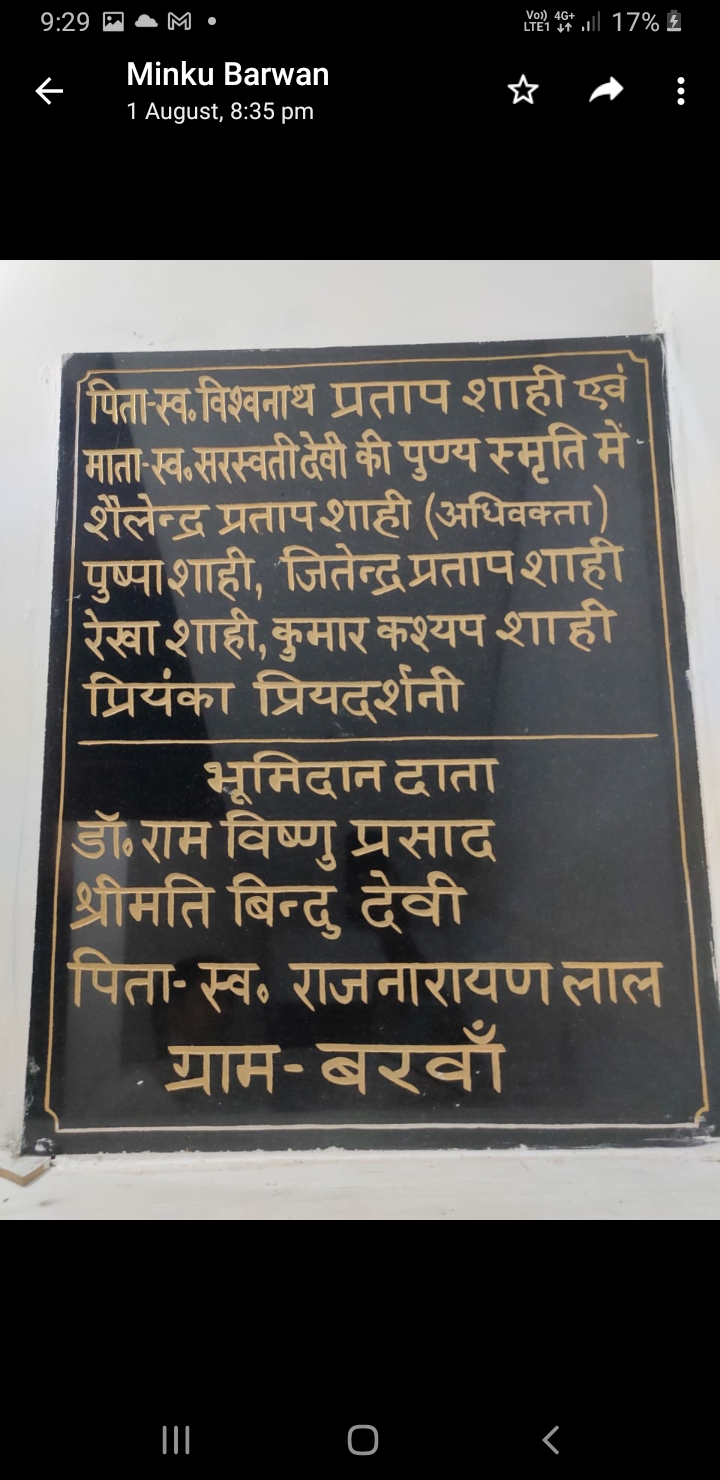 9:29
Vo)) 4G+
LTE1 17%
Minku Barwan
1 August, 8:35 pm
पिता-स्व. विश्वनाथ प्रताप शाही एवं
माता-स्व. सरस्वती देवी की पुण्य स्मृति में
शैलेन्द्र प्रताप शाही (अधिवक्ता)
पुष्पा शाही, जितेन्द्र प्रताप शाही
रेखा शाही, कुमार कश्यप शाही
प्रियंका प्रियदर्शनी
भूमिदान दाता
डॉ. राम विष्णु प्रसाद
श्रीमति बिन्दु देवी
पिता- स्व. राजनारायण लाल
ग्राम- बरवाँ